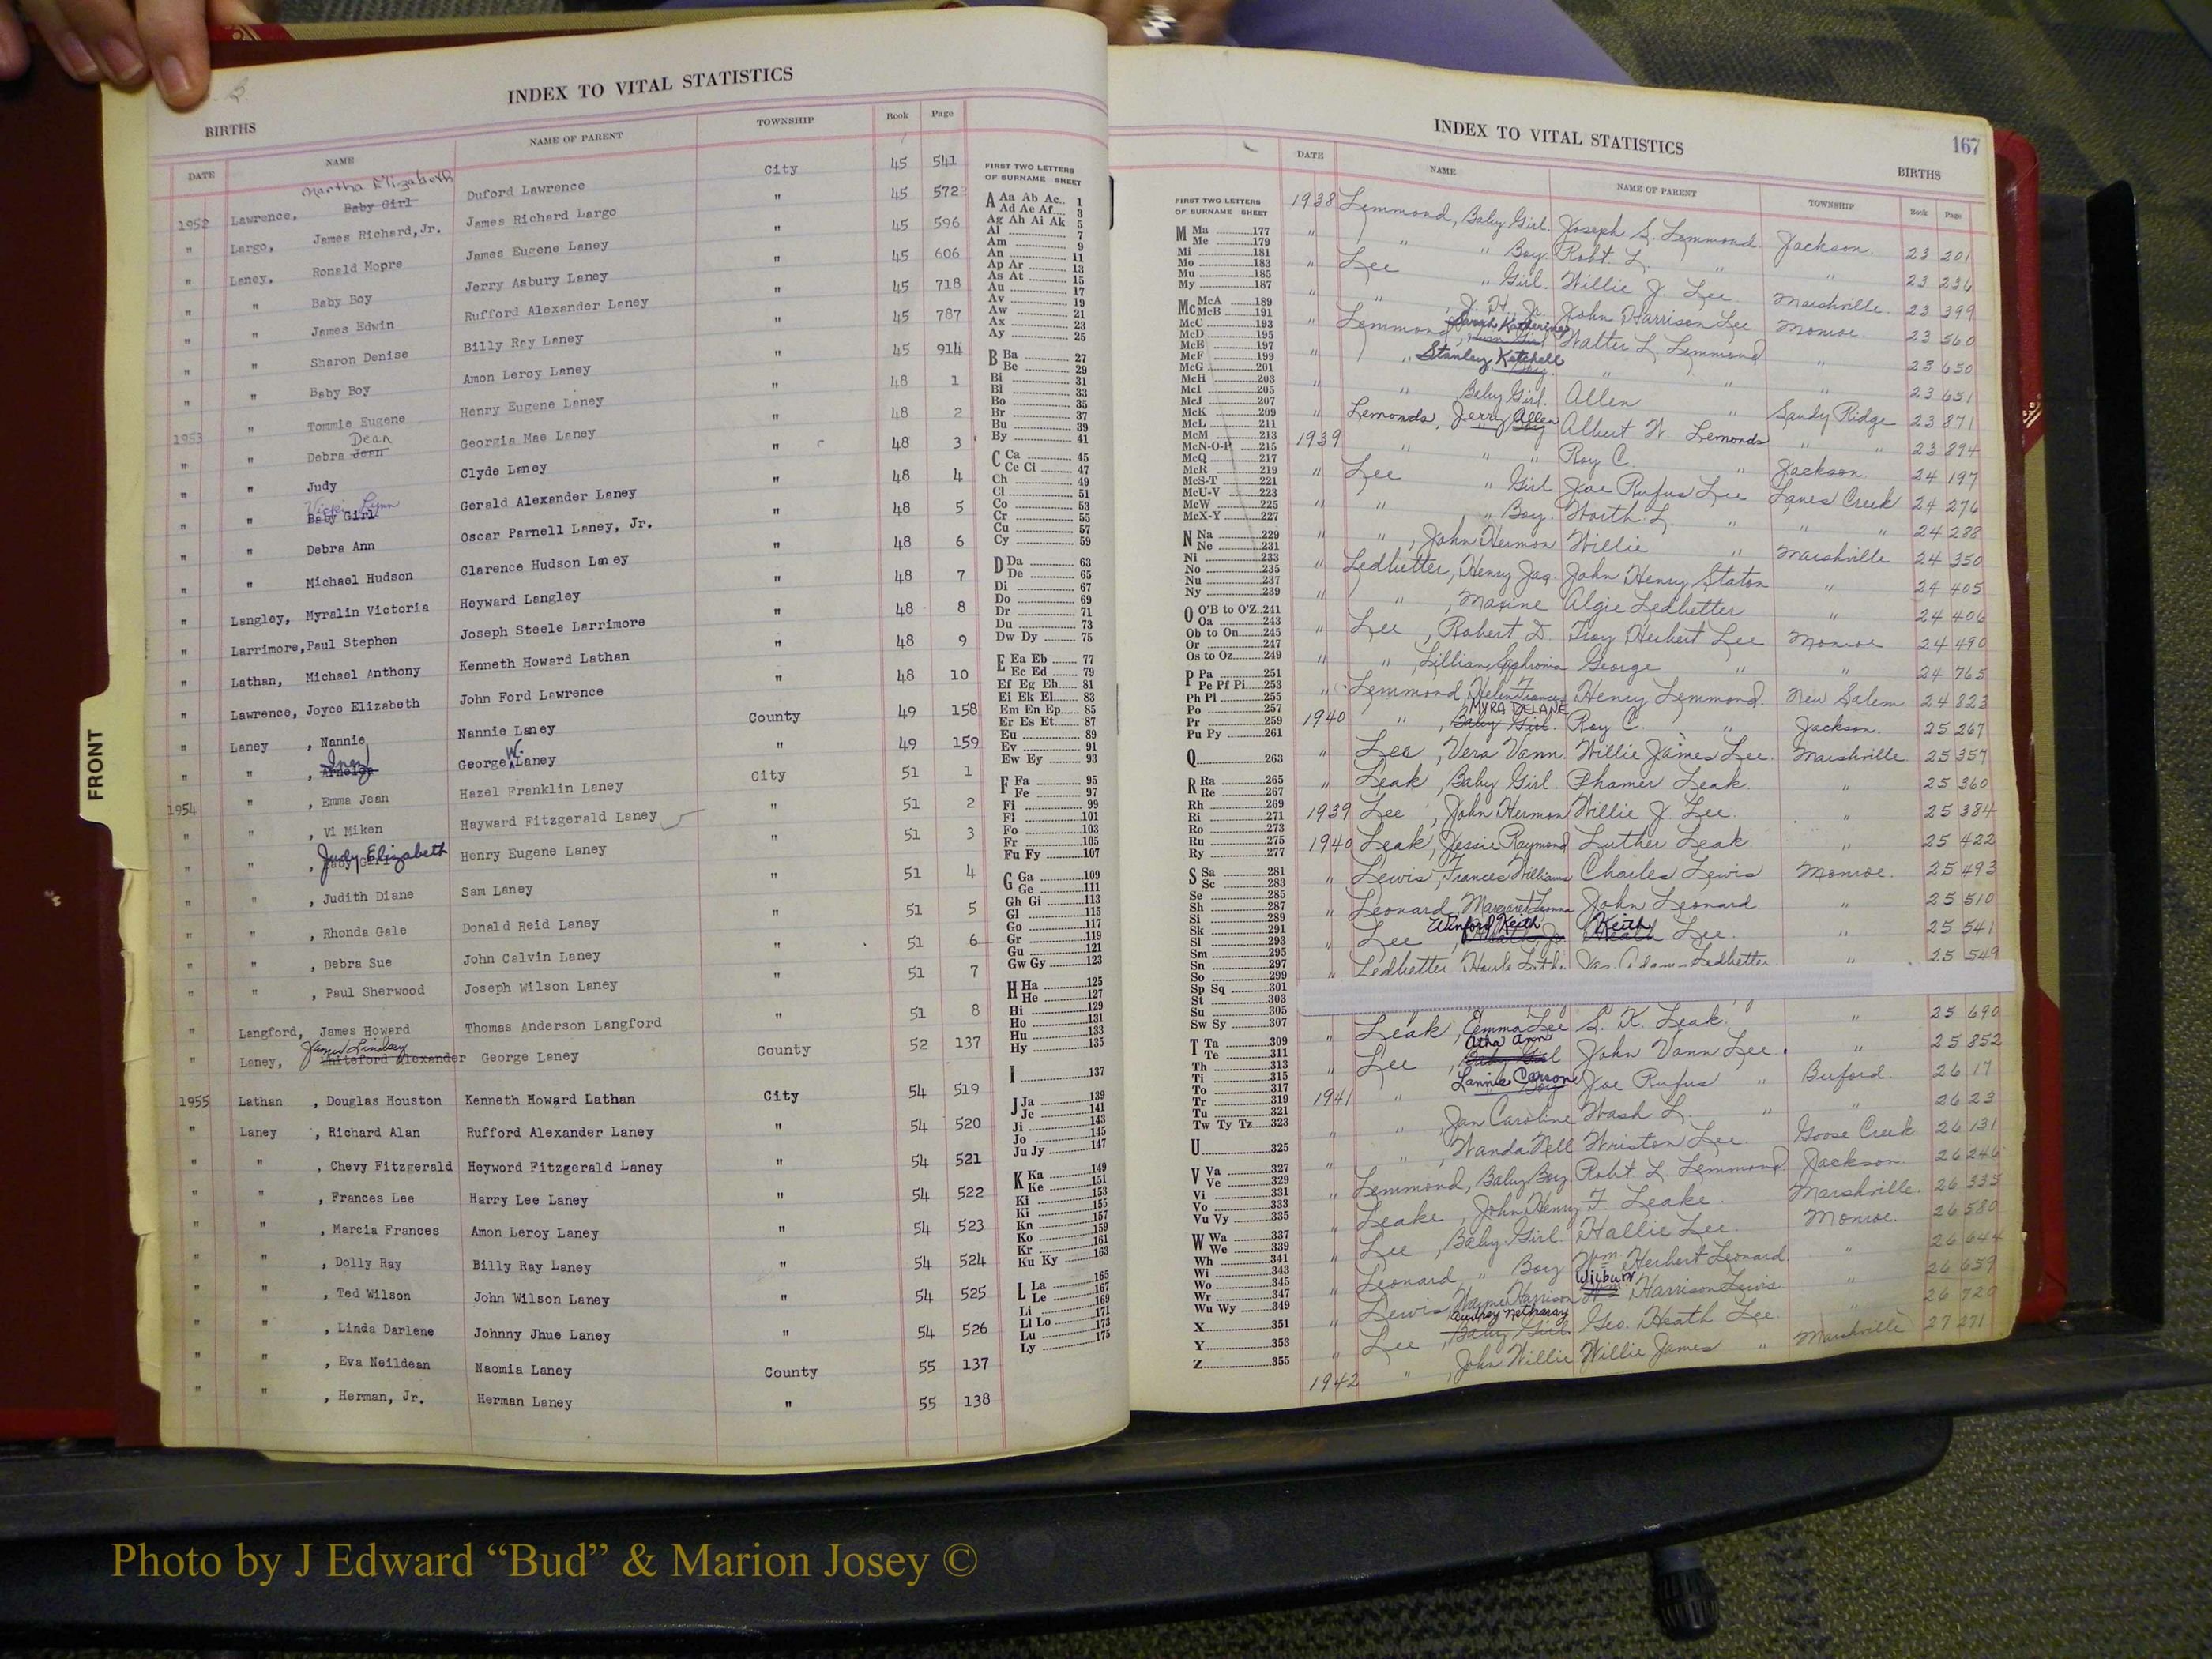 INDEX TO VITAL STATISTICS
BIRTHS
DATE NAME NAME OF PARENT TOWNSHIP Book Page
Martha Elizabeth
1952 Lawrence, Baby Girl Duford Lawrence City 45 541
" Largo, James Richard, Jr. James Richard Largo " 45 572
" Laney, Ronald Mopre James Eugene Laney " 45 596
" " Baby Boy Jerry Asbury Laney " 45 606
" " James Edwin Rufford Alexander Laney " 45 718
" " Sharon Denise Billy Ray Laney " 45 787
" " Baby Boy Amon Leroy Laney " 45 914
1953 " Tommie Eugene Henry Eugene Laney " 48 1
Dean
" " Debra Jean Georgia Mae Laney " 48 2
" " Judy Clyde Laney " 48 3
Vicki Lynn
" " Baby Girl Gerald Alexander Laney " 48 4
" " Debra Ann Oscar Parnell Laney, Jr. " 48 5
" " Michael Hudson Clarence Hudson Laney " 48 6
" Langley, Myralin Victoria Heyward Langley " 48 7
" Larrimore, Paul Stephen Joseph Steele Larrimore " 48 8
" Lathan, Michael Anthony Kenneth Howard Lathan " 48 9
" Lawrence, Joyce Elizabeth John Ford Lawrence " 48 10
" Laney , Nannie Nannie Laney County 49 158
" " , George W. Laney " 49 159
1954 " , Emma Jean Hazel Franklin Laney City 51 1
" " , Vi Miken Hayward Fitzgerald Laney " 51 2
Judy Elizabeth
" " , Baby Girl Henry Eugene Laney " 51 3
" " , Judith Diane Sam Laney " 51 4
" " , Rhonda Gale Donald Reid Laney " 51 5
" " , Debra Sue John Calvin Laney " 51 6
" " , Paul Sherwood Joseph Wilson Laney " 51 7
" Langford, James Howard Thomas Anderson Langford " 51 8
James Lindsey
" Laney, Whiteford Alexander George Laney County 52 137
1955 Lathan , Douglas Houston Kenneth Howard Lathan City 54 519
" Laney , Richard Alan Rufford Alexander Laney " 54 520
" " , Chevy Fitzgerald Heyword Fitzgerald Laney " 54 521
" " , Frances Lee Harry Lee Laney " 54 522
" " , Marcia Frances Amon Leroy Laney " 54 523
" " , Dolly Ray Billy Ray Laney " 54 524
" " , Ted Wilson John Wilson Laney " 54 525
" " , Linda Darlene Johnny Jhue Laney " 54 526
" " , Eva Neildean Naomia Laney County 55 137
" " , Herman, Jr. Herman Laney " 55 138
FRONT
FIRST TWO LETTERS
OF SURNAME SHEET
A Aa Ab Ac.. 1
Ad Ae Af.... 3
Ag Ah Ai Ak 5
Al 7
Am 9
An 11
Ap Ar 13
As At 15
Au 17
Av 19
Aw 21
Ax 23
Ay 25
B Ba 27
Be 29
Bi 31
Bl 33
Bo 35
Br 37
Bu 39
By 41
C Ca 45
Ce Ci 47
Ch 49
Cl 51
Co 53
Cr 55
Cu 57
Cy 59
D Da 63
De 65
Di 67
Do 69
Dr 71
Du 73
Dw Dy 75
E Ea Eb 77
Ec Ed 79
Ef Eg Eh 81
Ei Ek El 83
Em En Ep 85
Er Es Et 87
Eu 89
Ev 91
Ew Ey 93
F Fa 95
Fe 97
Fi 99
Fl 101
Fo 103
Fr 105
Fu Fy 107
G Ga 109
Ge 111
Gh Gi 113
Gl 115
Go 117
Gr 119
Gu 121
Gw Gy 123
H Ha 125
He 127
Hi 129
Ho 131
Hu 133
Hy 135
I 137
J Ja 139
Je 141
Ji 143
Jo 145
Ju Jy 147
K Ka 149
Ke 151
Ki 153
Kl 155
Kn 157
Ko 159
Kr 161
Ku Ky 163
L La 165
Le 167
Li 169
Ll Lo 171
Lu 173
Ly 175
INDEX TO VITAL STATISTICS 167
BIRTHS
FIRST TWO LETTERS
OF SURNAME SHEET
M Ma 177
Me 179
Mi 181
Mo 183
Mu 185
My 187
Mc McA 189
McB 191
McC 193
McD 195
McE 197
McF 199
McG 201
McH 203
McI 205
McJ 207
McK 209
McL 211
McM 213
McN-O-P 215
McQ 217
McR 219
McS-T 221
McU-V 223
McW 225
McX-Y 227
N Na 229
Ne 231
Ni 233
No 235
Nu 237
Ny 239
O O'B to O'Z 241
Oa 243
Ob to On 245
Or 247
Os to Oz 249
P Pa 251
Pe Pf Pi 253
Ph Pl 255
Po 257
Pr 259
Pu Py 261
Q 263
R Ra 265
Re 267
Rh 269
Ri 271
Ro 273
Ru 275
Ry 277
S Sa 281
Sc 283
Se 285
Sh 287
Si 289
Sk 291
Sl 293
Sm 295
Sn 297
So 299
Sp Sq 301
St 303
Su 305
Sw Sy 307
T Ta 309
Te 311
Th 313
Ti 315
To 317
Tr 319
Tu 321
Tw Ty Tz 323
U 325
V Va 327
Ve 329
Vi 331
Vo 333
Vu Vy 335
W Wa 337
We 339
Wh 341
Wi 343
Wo 345
Wr 347
Wu Wy 349
X 351
Y 353
Z 355
DATE NAME NAME OF PARENT TOWNSHIP Book Page
1938 Lemmond, Baby Girl. Joseph S. Lemmond Jackson. 23 201
" " " Boy. Robt L. " " 23 236
" Lee " Girl. Willie J. Lee Marshville 23 399
" " , J. H., Jr. John Harrison Lee Monroe. 23 560
Sarah Katherine
" Lemmond, Walter L. Lemmond " 23 650
Stanley Katchell
" " " " " 23 651
" " Baby Girl. Allen " Sandy Ridge 23 871
" Lemonds, Jerry Allen Albert W. Lemonds " " 23 894
1939 " " " Roy C. " Jackson 24 197
" Lee " Girl Joe Rufus Lee Lanes Creek 24 276
" " " Boy. Worth L. " " " 24 288
" " , John Hermon Willie " Marshville 24 350
" Ledbetter, Henry Jaq. John Henry Staton " 24 405
" " , Maxine Algie Ledbetter " 24 406
" Lee , Robert D. Troy Herbert Lee Monroe 24 490
" " , Lillian George " " 24 765
" Lemmond, Helen Frances Henry Lemmond. New Salem 24 823
MYRA DELANE
1940 " , Baby Girl. Roy C. " Jackson. 25 267
" Lee , Vera Vann. Willie James Lee. Marshville 25 357
" Leak , Baby Girl. Phamer Leak. " 25 360
1939 Lee , John Hermon Willie J. Lee. " 25 384
1940 Leak, Jessie Raymond Luther Leak " 25 422
" Lewis, Frances Williams Charles Lewis Monroe. 25 493
" Leonard, Margaret John Leonard. " 25 510
Winford Keith Keith
" Lee , Heath Lee. " 25 541
" Ledbetter Ledbetter " 25 549
" Leak , Emma Lee S. K. Leak. " 25 690
Atha Ann
" Lee , Baby Girl John Vann Lee. " 25 852
Lannie Carson
1941 " Boy Joe Rufus " Buford 26 17
" " , Jan Caroline Wash L. " " 26 23
" " , Wanda Nell Wriston Lee. Goose Creek 26 131
" Lemmond, Baby Boy Robt. L. Lemmond Jackson 26 246
" Leake , John Henry F. Leake Marshville. 26 335
" Lee , Baby Girl. Hallie Lee. Monroe. 26 580
" Leonard " Boy Wm. Herbert Leonard " 26 644
Wilbur
" Lewis, Wayne Harrison Wm. Harrison Lewis " 26 659
" Lee , Baby Girl. Geo. Heath Lee. " 26 720
1942 " , John Willie Willie James " Marshville 27 271
Photo by J Edward “Bud” & Marion Josey ©